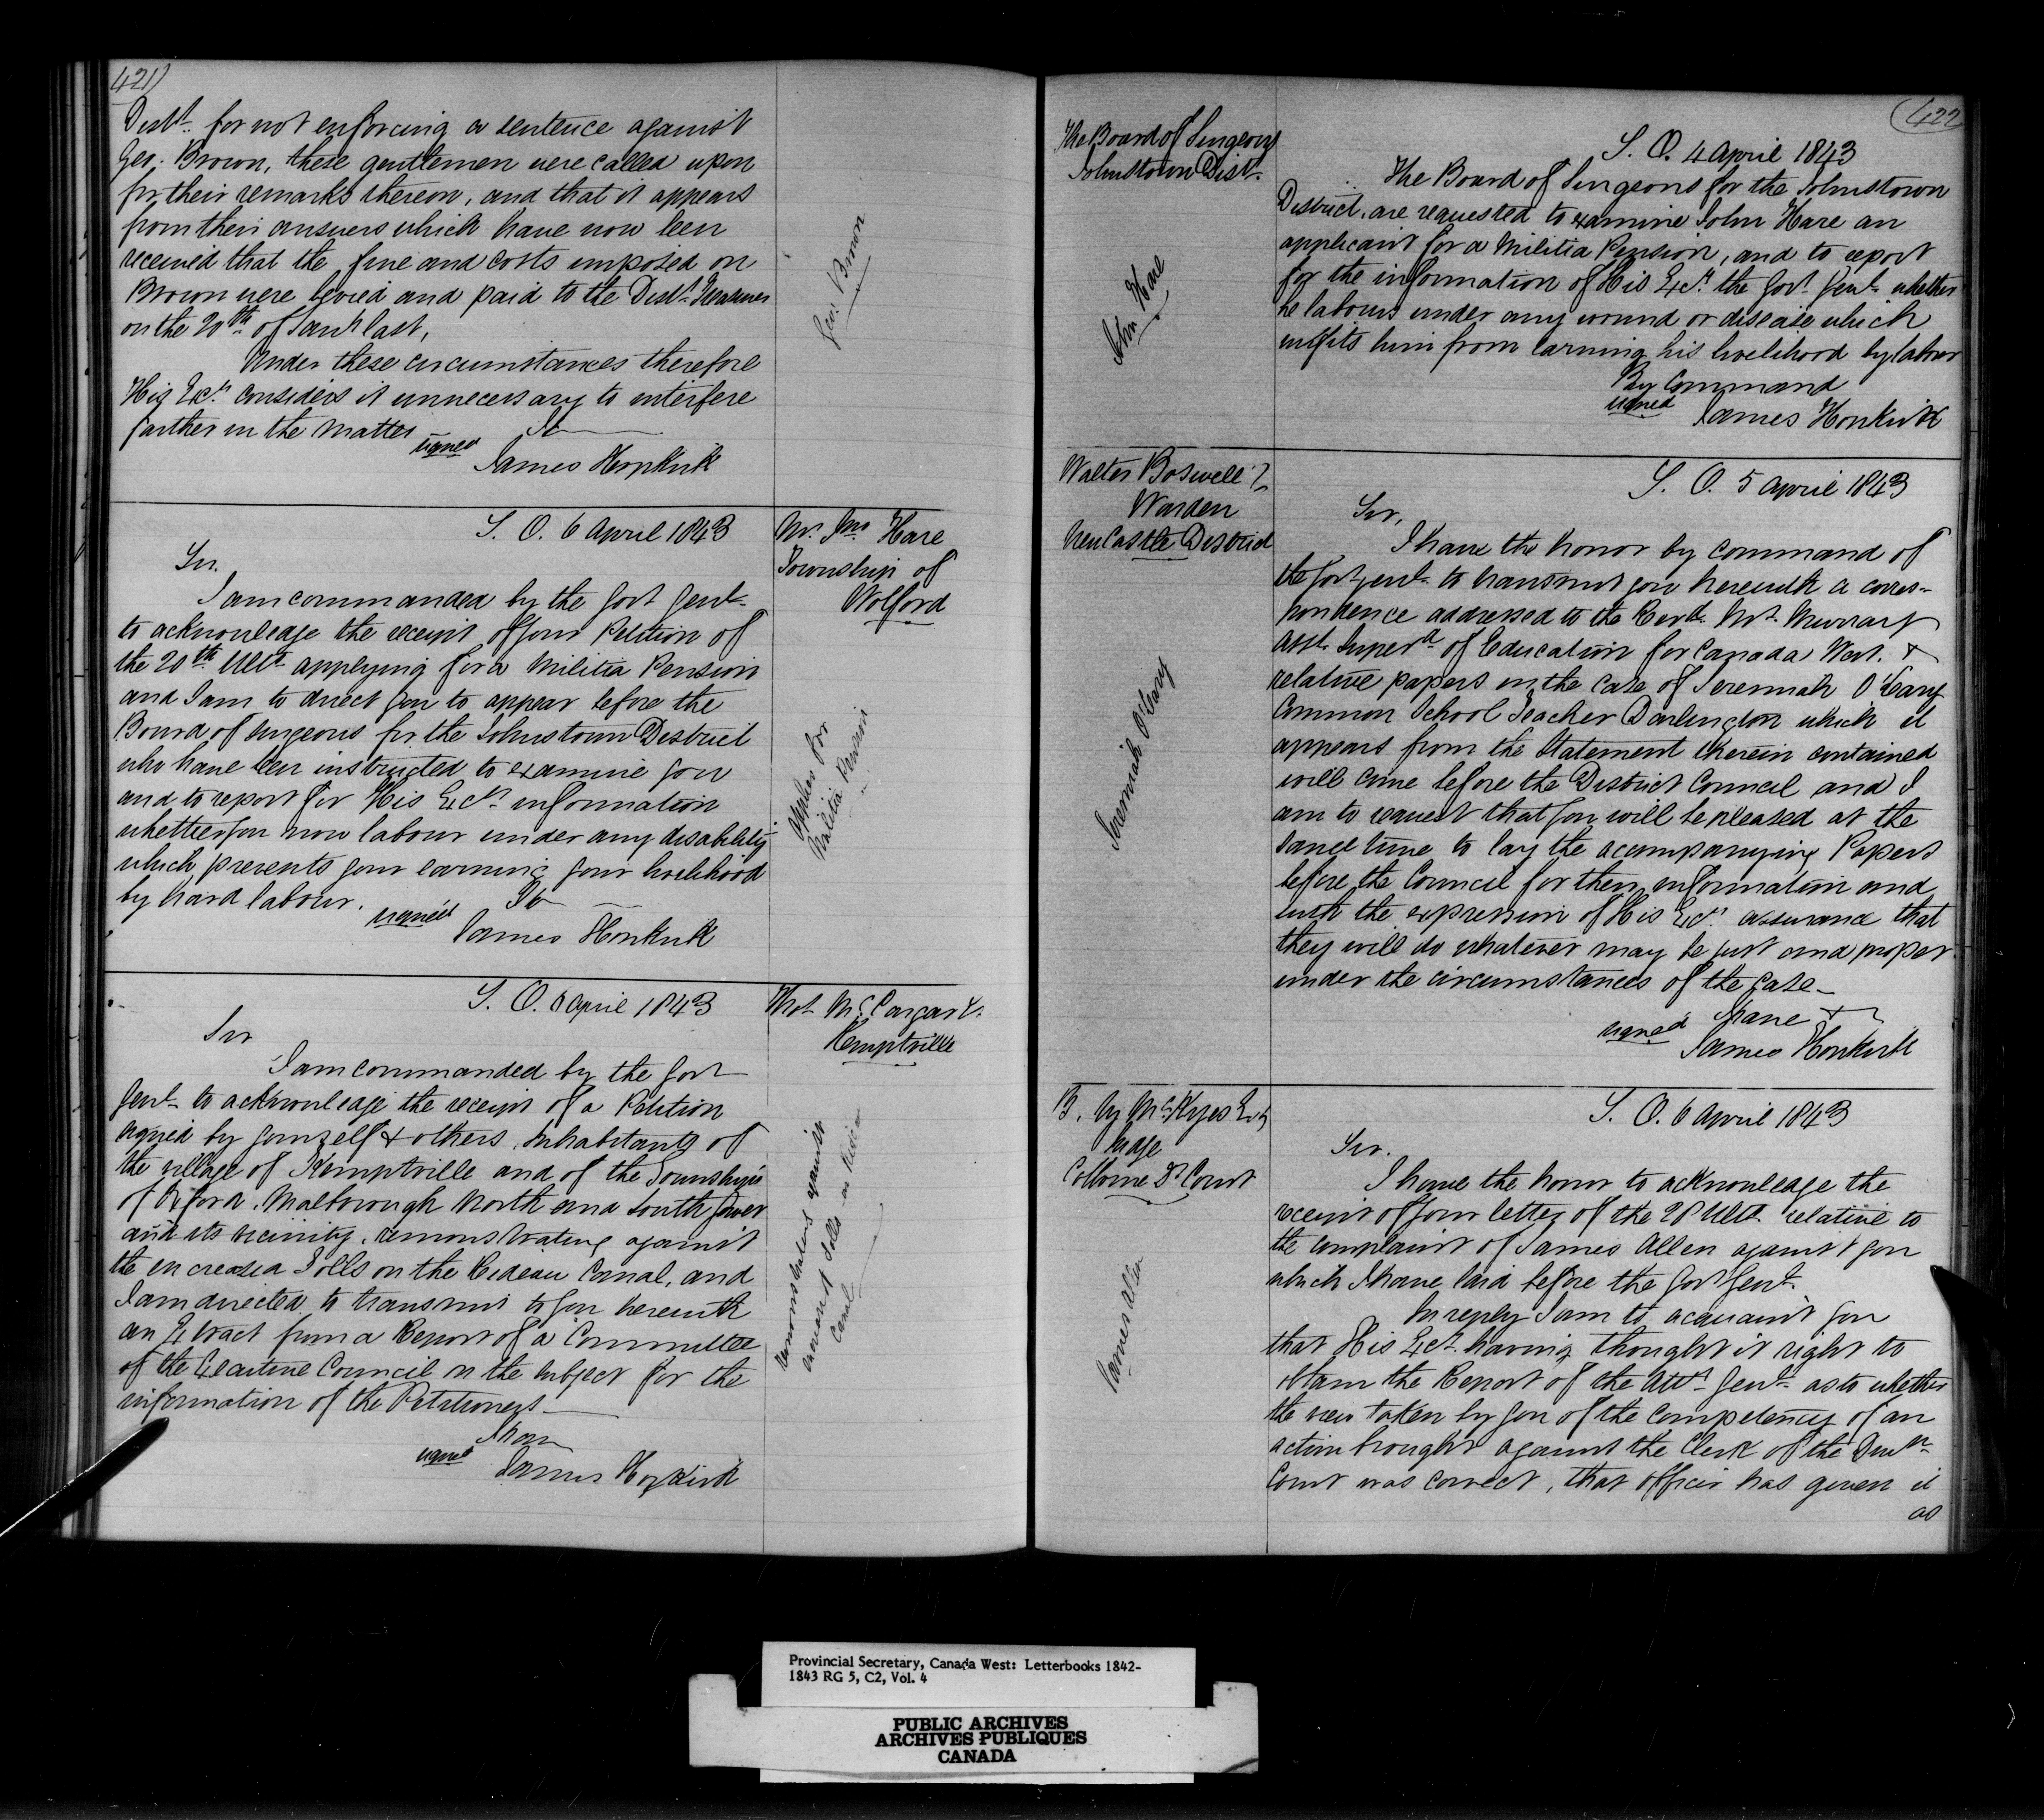 421)
Distt. for not enforcing a sentence against
Geo. Brown, these gentlemen were called upon
for their remarks thereon, and that it appears
from their answers which have now been
received that the fine and costs imposed on
Brown were levied and paid to the Distt. Treasurer
on the 20th of Jany last,
Under these circumstances therefore
His Excy. considers it unnecessary to interfere
farther in the matter
signed
James Hopkirk
Geo. Brown
S. O. 6 April 1843
Mr. Jno Hare
Township of
Wolford
Sir.
I am commanded by the Govr Genl.
to acknowledge the receipt of your Petition of
the 20th Ulto. applying for a Militia Pension
and I am to direct you to appear before the
Board of Surgeons for the Johnstown District
who have been instructed to examine you
and to report for His Excy. information
whether you now labour under any disability
which prevents your earning your livelihood
by hard labour.
signed
James Hopkirk
applies for
Militia Pension
S. O. 6 April 1843
Kemptville
Sir
I am commanded by the Govr
Genl. to acknowledge the receipt of a Petition
signed by yourself & others, Inhabitants of
the village of Kemptville and of the Townships
of Oxford, Malborough North and South Gower
and its vicinity, remonstrating against
the encreased Tolls on the Rideau Canal, and
I am directed to transmit to you herewith
an Extract from a Report of a Committee
of the Executive Council on the subject for the
information of the Petitioners
I have
signed
James Hopkirk
remonstrating against
amount Tolls on Rideau
Canal
422
The Board of Surgeons
Johnstown Dist.
S. O. 4 April 1843
The Board of Surgeons for the Johnstown
District, are requested to examine John Hare an
applicant for a Militia Pension, and to report
for the information of His Excy. the Govr. Genl. whether
he labours under any wound or disease which
unfits him from earning his livelihood by labour
By Command
signed
James Hopkirk
John Hare
Walter Boswell
Warden
NewCastle District
S. O. 5 April 1843
Sir,
I have the honor by command of
the Govr Genl. to transmit you herewith a corres-
pondence addressed to the Revd. Mr. Murray
Asst. Superd. of Education for Canada West. &
relative papers in the case of Jeremiah O'Leary
Common School Teacher Darlington which it
appears from the Statement therein contained
will come before the District Council and I
am to request that you will be pleased at the
same time to lay the acompanying Papers
before the Council for their information and
with the expression of His Excy. assurance that
they will do whatever may be just and proper
under the circumstances of the case_
I have &
signed
James Hopkirk
Jeremiah O'Leary
Judge
Colborne Dt Court
S. O. 6 April 1843
Sir.
I have the honor to acknowledge the
receipt of your letter of the 28 Ulto. relative to
the complaint of James Allen against you
which I have laid before the Govr Genl.
In reply I am to acquaint you
that His Excy. having thought it right to
obtain the Report of the Atty. Genl. as to whether
the view taken by you of the competency of an
action brought against the Clerk of the Divn.
Court was correct, that officer has given it
as
James Allen
Provincial Secretary, Canada West: Letterbooks 1842-
1843 RG 5, C2, Vol. 4
PUBLIC ARCHIVES
ARCHIVES PUBLIQUES
CANADA